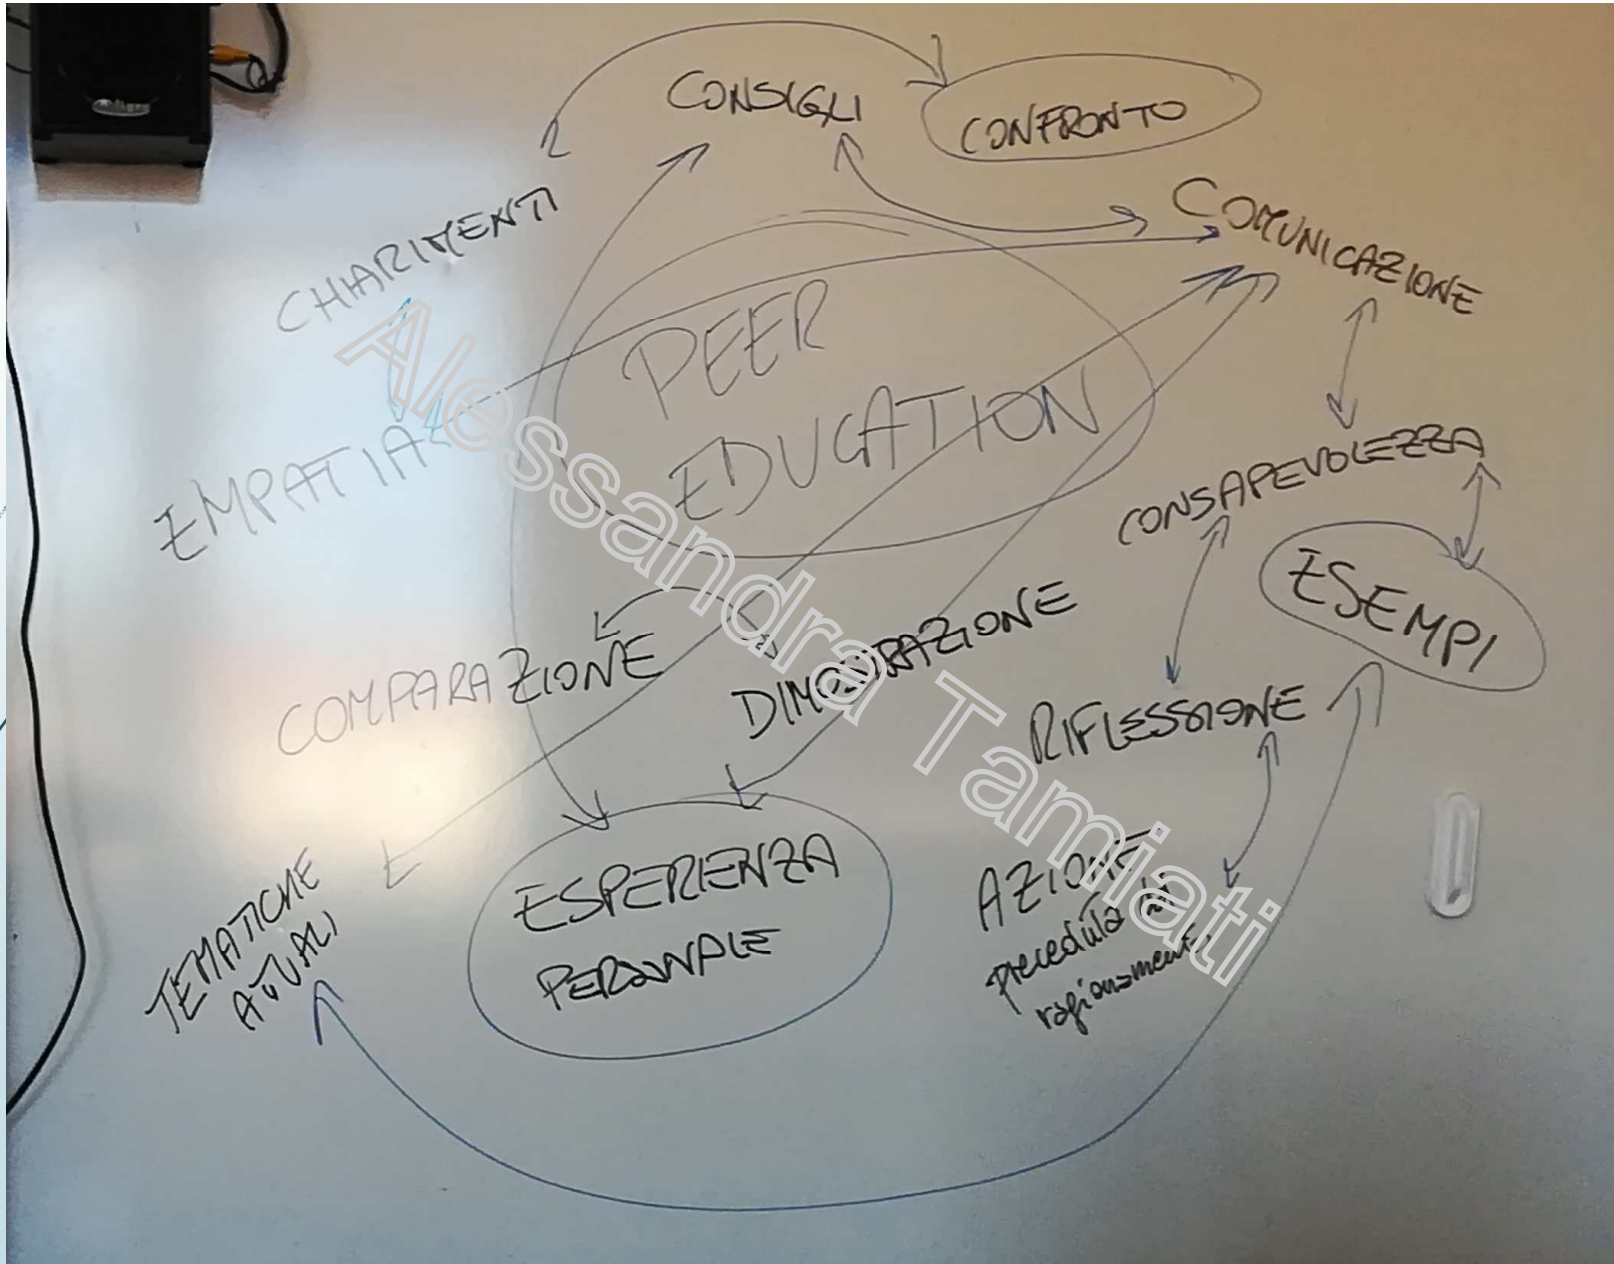 CONSIGLI
CONFRONTO
CHIARIMENTI
COMUNICAZIONE
PEER
EDUCATION
EMPATIA
CONSAPEVOLEZZA
ESEMPI
COMPARAZIONE
DIMOSTRAZIONE
RIFLESSIONE
TEMATICHE
ATTUALI
ESPERIENZA
PERSONALE
AZIONE
preceduta da
ragionamento
Alessandra Tamiati